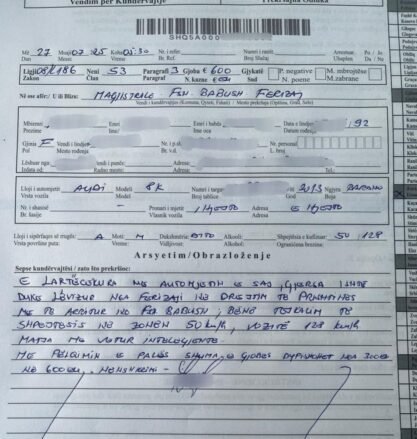 Vendim për Kundërvajtje Prekršajna Odluka
SHQSA000
Më 27 Muaji 07 25 Koha 05:30 Nr. i refer. Numri i rastit Arrestuar Po / Jo
Dat. Mesec Vreme Br. Ref. Broj Slučaja Uhapšen Da / Ne
Ligji 08/L186 Neni 53 Paragrafi 3 Gjoba € 600 Gjykatë P. negative M. mbrojtëse
Zakon Član Paragraf N. kazne € Sud N. poene M. zabrane
Në ose afër: / U ili Blizu: MAGJISTRALE - FSH. BABUSH FERIZAJ
Vendi i kundërvajtjes (Komuna, Qyteti, Fshati) / Mesto prekršaja (Opština, Grad, Selo)
Mbiemri Emri Emri i babës Data e lindjes 92
Prezime Ime Ime oca Datum rođenja
Gjinia F Vendi i lindjes Nr. i p.sh. Nr. personal
Pol M. rođenja Br. v.d. L. broj
Lëshuar nga Adresa:
Izdata od Adresa:
Lloji i automjetit AUDI Modeli 8K Numri i targave Viti 2013 Ngjyra BARDHO
Vrsta vozila Model Broj tablice God Boja
Nr. i shasisë Pronari i mjetit I NJEJTO Adresa E NJEJTO
Br. šasije Vlasnik vozila Adresa
Lloji i sipërfaqes së rrugës A Moti M Dukshmëria Alkooli: Shpejtësia e kufizuar: 50 / 128
Vrsta površine puta: Vreme: Vidljivost: Alkohol: Ograničena brzina:
Arsyetim/Obrazloženje
Sepse kundërvajtësi / zato što prekršioc:
E LARTËCEKURA ME AUTOMJETIN E SAJ, GJERSA ISHTE
DUKE LËVIZUR NGA FERIZAJI NË DREJTIM TË PRISHTINËS
ME TË ARRITUR TEK FSH BABUSH, BËNË TEJKALIM TË
SHPEJTËSISË NË ZONËN 50 km/h, VOZITË 128 km/h
MATJA ME VETUR INTELEGJENTE.
ME PËLQIMIN E PALËS SHUMA E GJOBËS DYFISHOHET NGA 300€
NË 600 €, NENSHKRIMI -